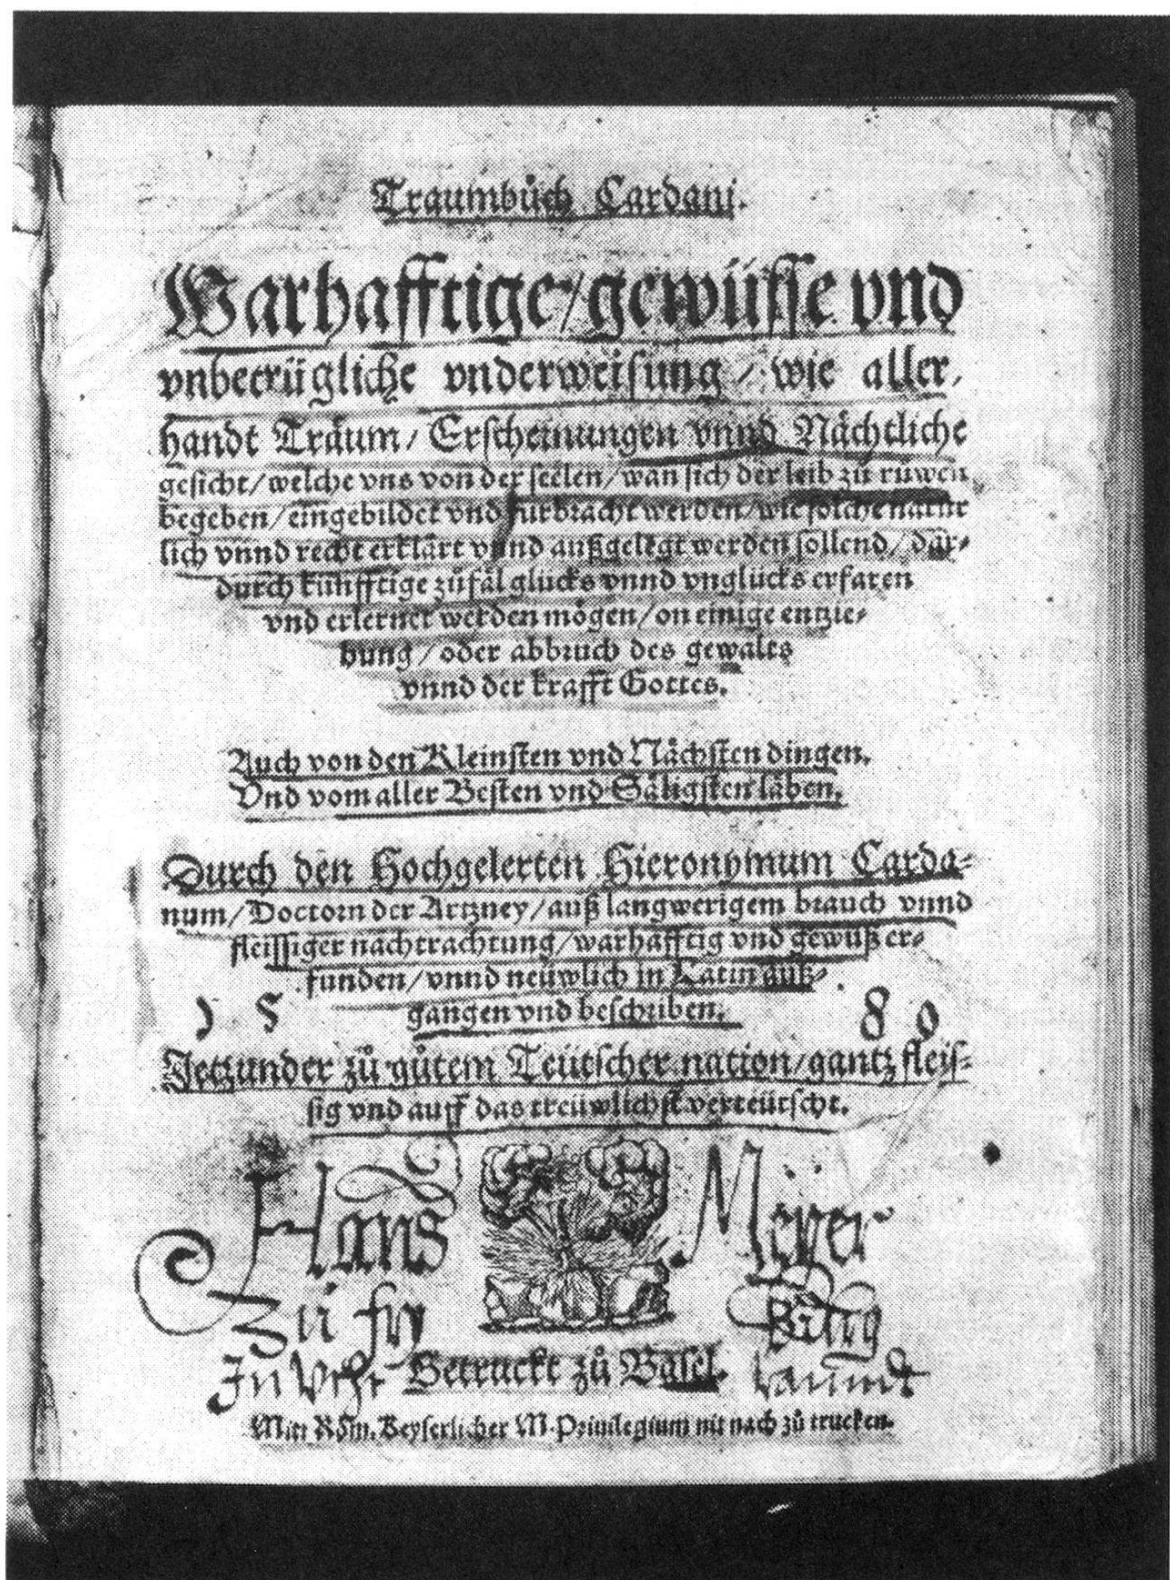 Traumbůch Cardani.
Warhafftige/gewüsse vnd
vnbetrügliche vnderweisung/ wie aller,
handt Träum/ Erscheinungen vnnd Nächtliche
gesicht/welche vns von der seelen/wan sich der leib zů ruwen
begeben/eingebildet vnd fürbracht werden/wie solche natür
lich vnnd recht erklärt vnnd außgelegt werden sollend/ dar-
durch künfftige zůfäl glücks vnnd vnglücks erfaren
vnd erlernet werden mögen/on einige entzie-
hung/oder abbruch des gewalts
vnnd der krafft Gottes.
Auch von den Kleinsten vnd Nächsten dingen.
Vnd vom aller Besten vnd Säligsten läben.
Durch den Hochgelerten Hieronymum Carda-
num/Doctorn der Artzney/auß langwerigem brauch vnnd
fleissiger nachtrachtung/warhafftig vnd gewüß er-
funden/vnnd neüwlich in Latin auß-
gangen vnd beschriben.
15 80
Jetzunder zů gůtem Teütscher nation/gantz fleis-
sig vnd auff das treüwlichst verteütscht.
Hans Meyer
Zů fry Burg
In Getruckt zů Basel.
Mitt Röm. Keyserlicher M. Priuilegium nit nach zů trucken.